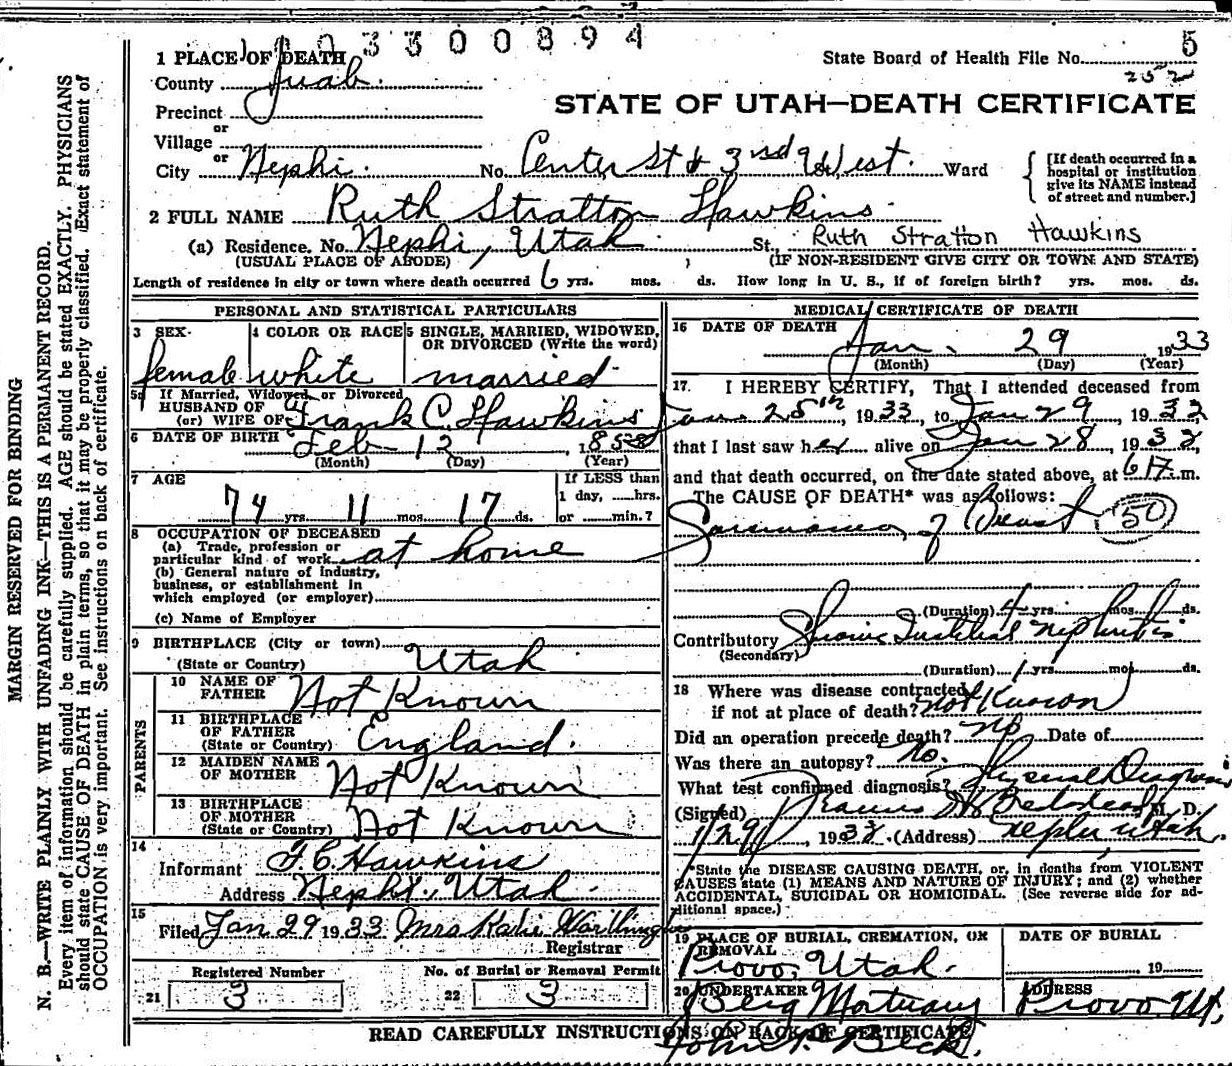 3300894
1 PLACE OF DEATH
State Board of Health File No. 5
252
County Juab.
STATE OF UTAH—DEATH CERTIFICATE
Precinct
or
Village
or
City Nephi. No. Center St & 3rd West. Ward
[If death occurred in a hospital or institution give its NAME instead of street and number.]
2 FULL NAME Ruth Stratton Hawkins.
(a) Residence. No. Nephi, Utah. St. Ruth Stratton Hawkins
(USUAL PLACE OF ABODE) (IF NON-RESIDENT GIVE CITY OR TOWN AND STATE)
Length of residence in city or town where death occurred 6 yrs. mos. ds. How long in U. S., if of foreign birth? yrs. mos. ds.
PERSONAL AND STATISTICAL PARTICULARS
3 SEX 4 COLOR OR RACE 5 SINGLE, MARRIED, WIDOWED, OR DIVORCED (Write the word)
female white married
5a If Married, Widowed, or Divorced
HUSBAND OF
(or) WIFE OF Frank C. Hawkins
6 DATE OF BIRTH Feb 12 1858
(Month) (Day) (Year)
7 AGE If LESS than
1 day, hrs.
74 yrs. 11 mos. 17 ds. or min.?
8 OCCUPATION OF DECEASED
(a) Trade, profession or
particular kind of work at home
(b) General nature of industry,
business, or establishment in
which employed (or employer)
(c) Name of Employer
9 BIRTHPLACE (City or town)
(State or Country) Utah
PARENTS
10 NAME OF FATHER Not Known
11 BIRTHPLACE OF FATHER (State or Country) England.
12 MAIDEN NAME OF MOTHER Not Known
13 BIRTHPLACE OF MOTHER (State or Country) Not Known
14
Informant F. C. Hawkins
Address Nephi, Utah.
15
Filed Jan 29 1933 Mrs
Registrar
Registered Number No. of Burial or Removal Permit
21 3 22 3
MEDICAL CERTIFICATE OF DEATH
16 DATE OF DEATH
Jan. 29 1933
(Month) (Day) (Year)
17. I HEREBY CERTIFY, That I attended deceased from
Jan 25th, 1933, to Jan 29, 1933,
that I last saw her alive on Jan 28, 1933,
and that death occurred, on the date stated above, at m.
The CAUSE OF DEATH* was as follows:
of Breast 50
(Duration) 4 yrs. mos. ds.
Contributory Nephritis
(Secondary)
(Duration) 1 yrs. mos. ds.
18 Where was disease contracted
if not at place of death? not Known
Did an operation precede death? no Date of
Was there an autopsy? no.
What test confirmed diagnosis? Physical Diagnosis
(Signed) M. D.
1/29, 1933. (Address) Nephi Utah.
*State the DISEASE CAUSING DEATH, or, in deaths from VIOLENT
CAUSES state (1) MEANS AND NATURE OF INJURY; and (2) whether
ACCIDENTAL, SUICIDAL OR HOMICIDAL. (See reverse side for ad-
ditional space.)
19 PLACE OF BURIAL, CREMATION, OR REMOVAL DATE OF BURIAL
Provo, Utah. 19
20 UNDERTAKER ADDRESS
Berg Mortuary Provo. Ut.
John P. Beck.
READ CAREFULLY INSTRUCTIONS ON BACK OF CERTIFICATE
MARGIN RESERVED FOR BINDING
N. B.—WRITE PLAINLY WITH UNFADING INK—THIS IS A PERMANENT RECORD.
Every item of information should be carefully supplied. AGE should be stated EXACTLY. PHYSICIANS
should state CAUSE OF DEATH in plain terms, so that it may be properly classified. Exact statement of
OCCUPATION is very important. See instructions on back of certificate.